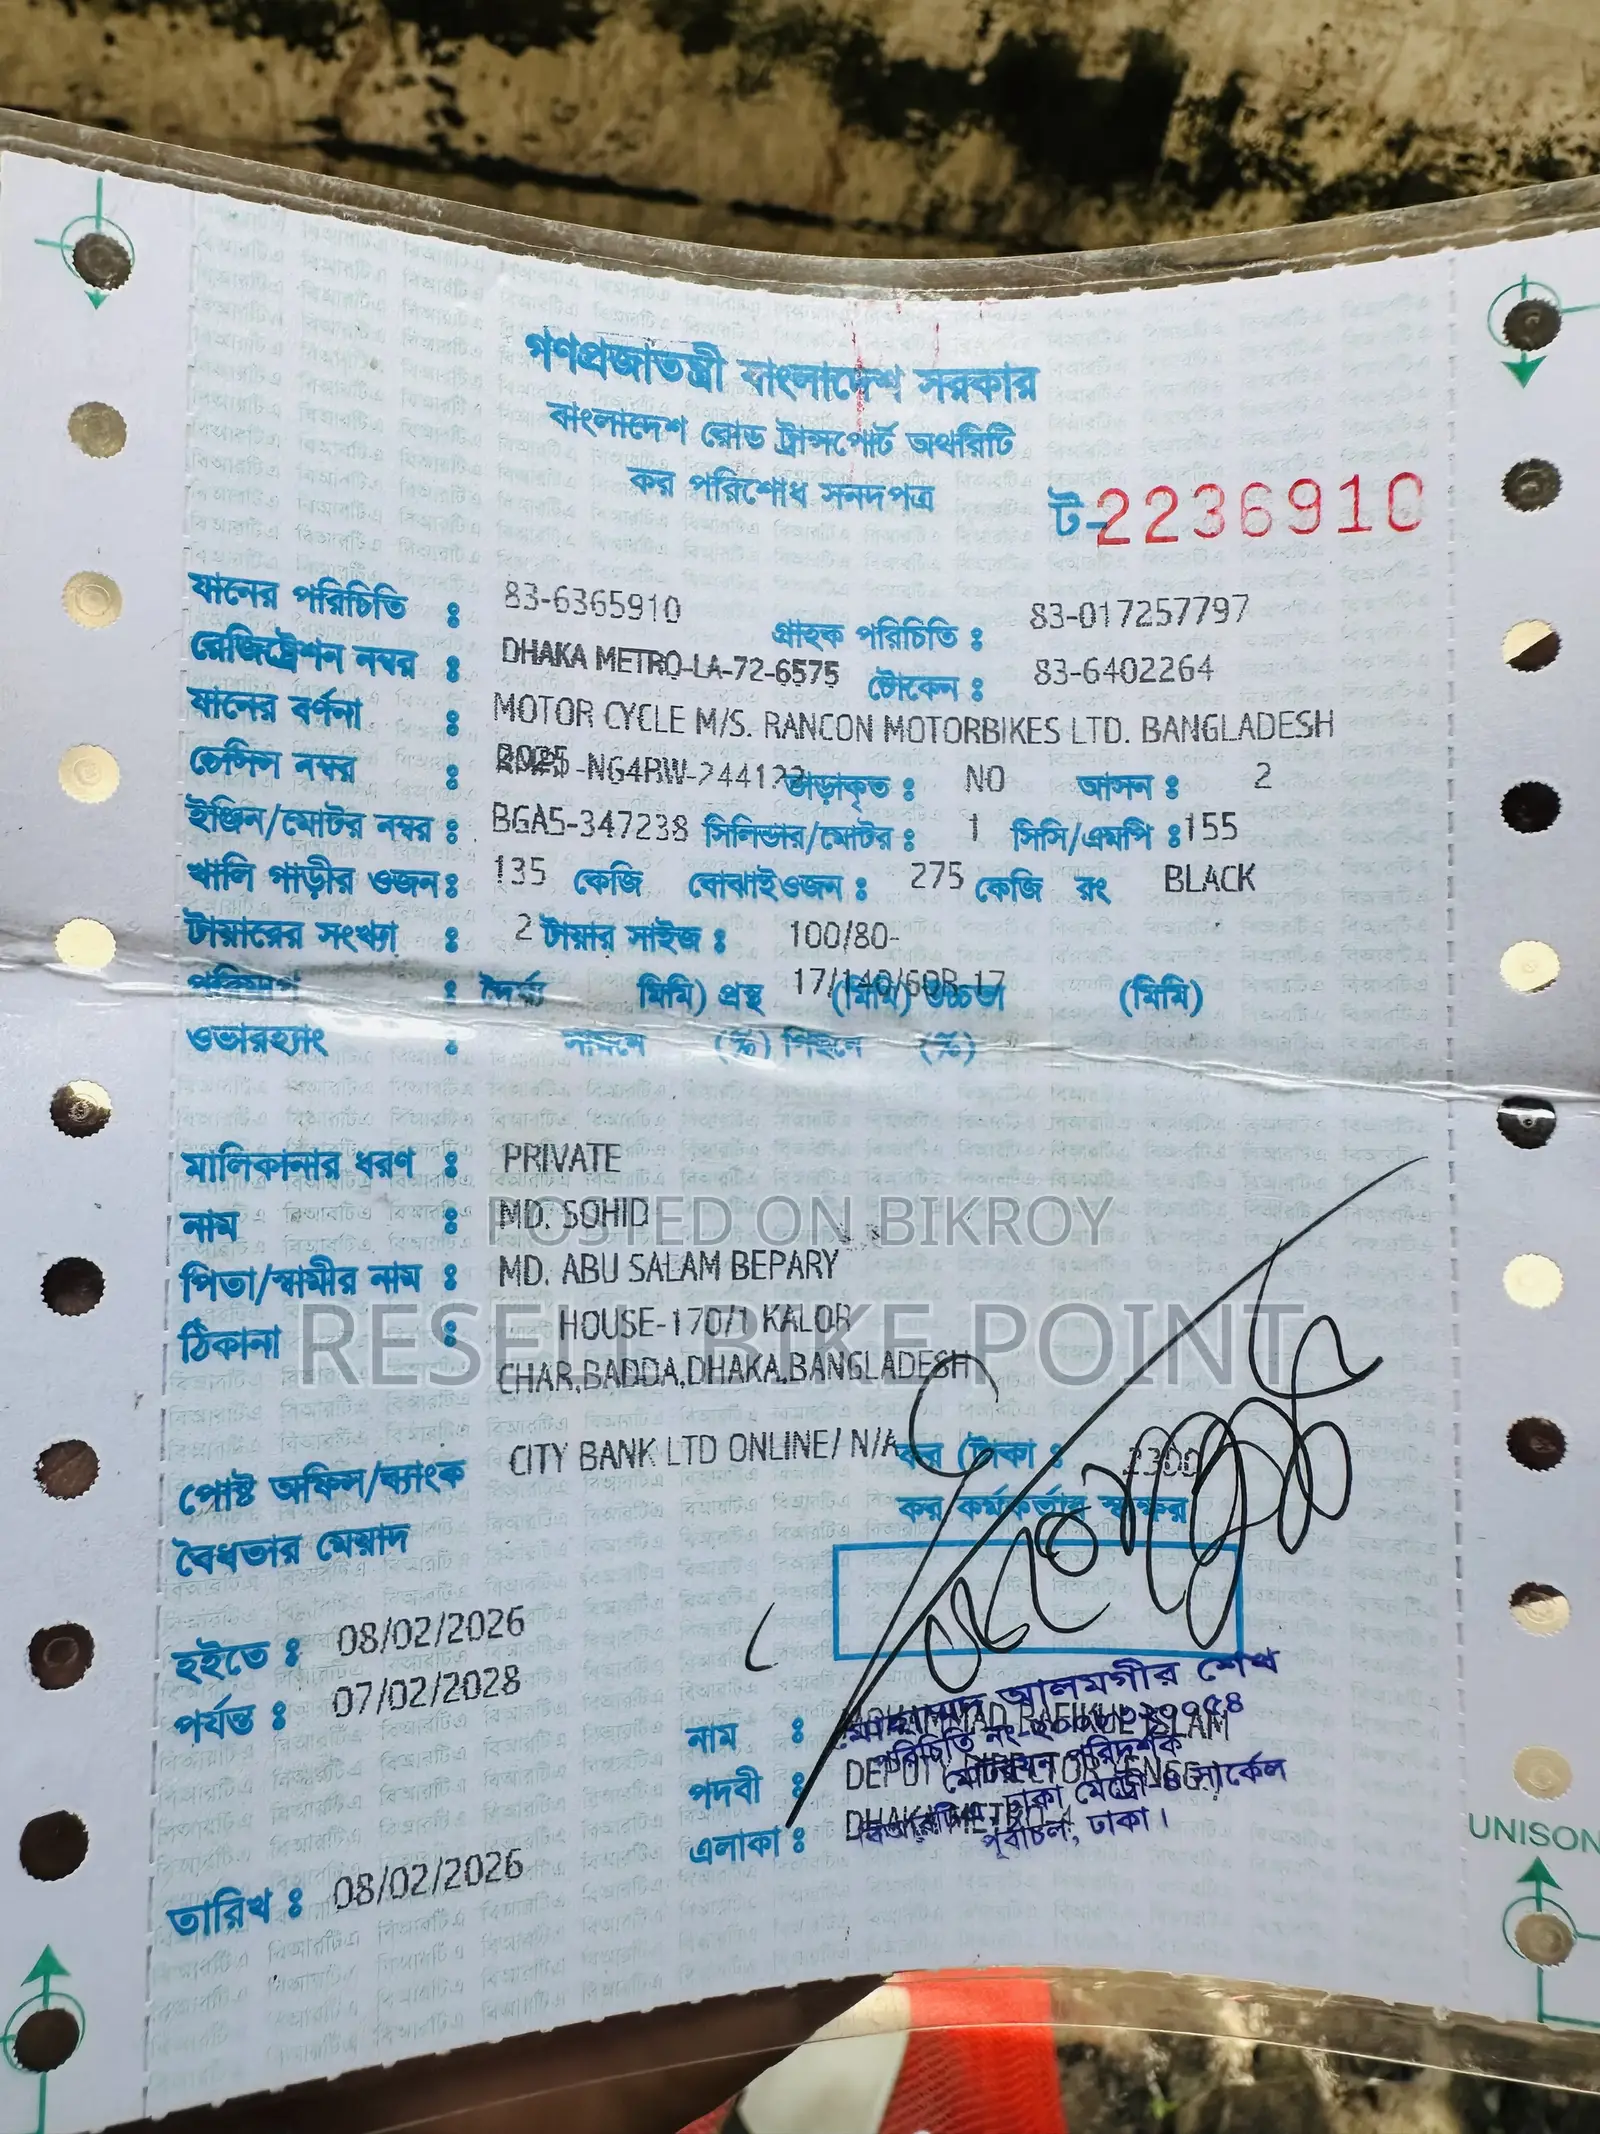 গণপ্রজাতন্ত্রী বাংলাদেশ সরকার
বাংলাদেশ রোড ট্রান্সপোর্ট অথরিটি
কর পরিশোধ সনদপত্র ট-2236910
যানের পরিচিতি : 83-6365910 গ্রাহক পরিচিতি : 83-017257797
রেজিষ্ট্রেশন নম্বর : DHAKA METRO-LA-72-6575 টোকেন : 83-6402264
যানের বর্ণনা : MOTOR CYCLE M/S. RANCON MOTORBIKES LTD. BANGLADESH
চেসিস নম্বর : -NG4BW- ভাড়াকৃত : NO আসন : 2
ইঞ্জিন/মোটর নম্বর : BGA5-347238 সিলিন্ডার/মোটর : 1 সিসি/এমপি : 155
খালি গাড়ীর ওজন : 135 কেজি বোঝাইওজন : 275 কেজি রং BLACK
টায়ারের সংখ্যা : 2 টায়ার সাইজ : 100/80-
17/140/60R-17
পরিমাপ : দৈর্ঘ্য মিমি) প্রস্থ (মিমি) উচ্চতা (মিমি)
ওভারহ্যাং : সামনে (%) পিছনে (%)
মালিকানার ধরণ : PRIVATE
নাম : MD. SOHID
POSTED ON BIKROY
পিতা/স্বামীর নাম : MD. ABU SALAM BEPARY
ঠিকানা : HOUSE-170/1 KALOR
RESELL BIKE POINT
CHAR,BADDA,DHAKA,BANGLADESH
পোষ্ট অফিস/ব্যাংক CITY BANK LTD ONLINE/ N/A কর (টাকা : 2300
কর কর্মকর্তার স্বাক্ষর
বৈধতার মেয়াদ
হইতে : 08/02/2026
পর্যন্ত : 07/02/2028
আলমগীর শেখ
নাম : RAFIKUL ISLAM
পরিচিতি নং-
মোটরযান পরিদর্শক
পদবী : DEPUTY DIRECTOR
ঢাকা মেট্রো সার্কেল
এলাকা : DHAKA METRO-4
পূর্বাচল, ঢাকা।
তারিখ : 08/02/2026
UNISON